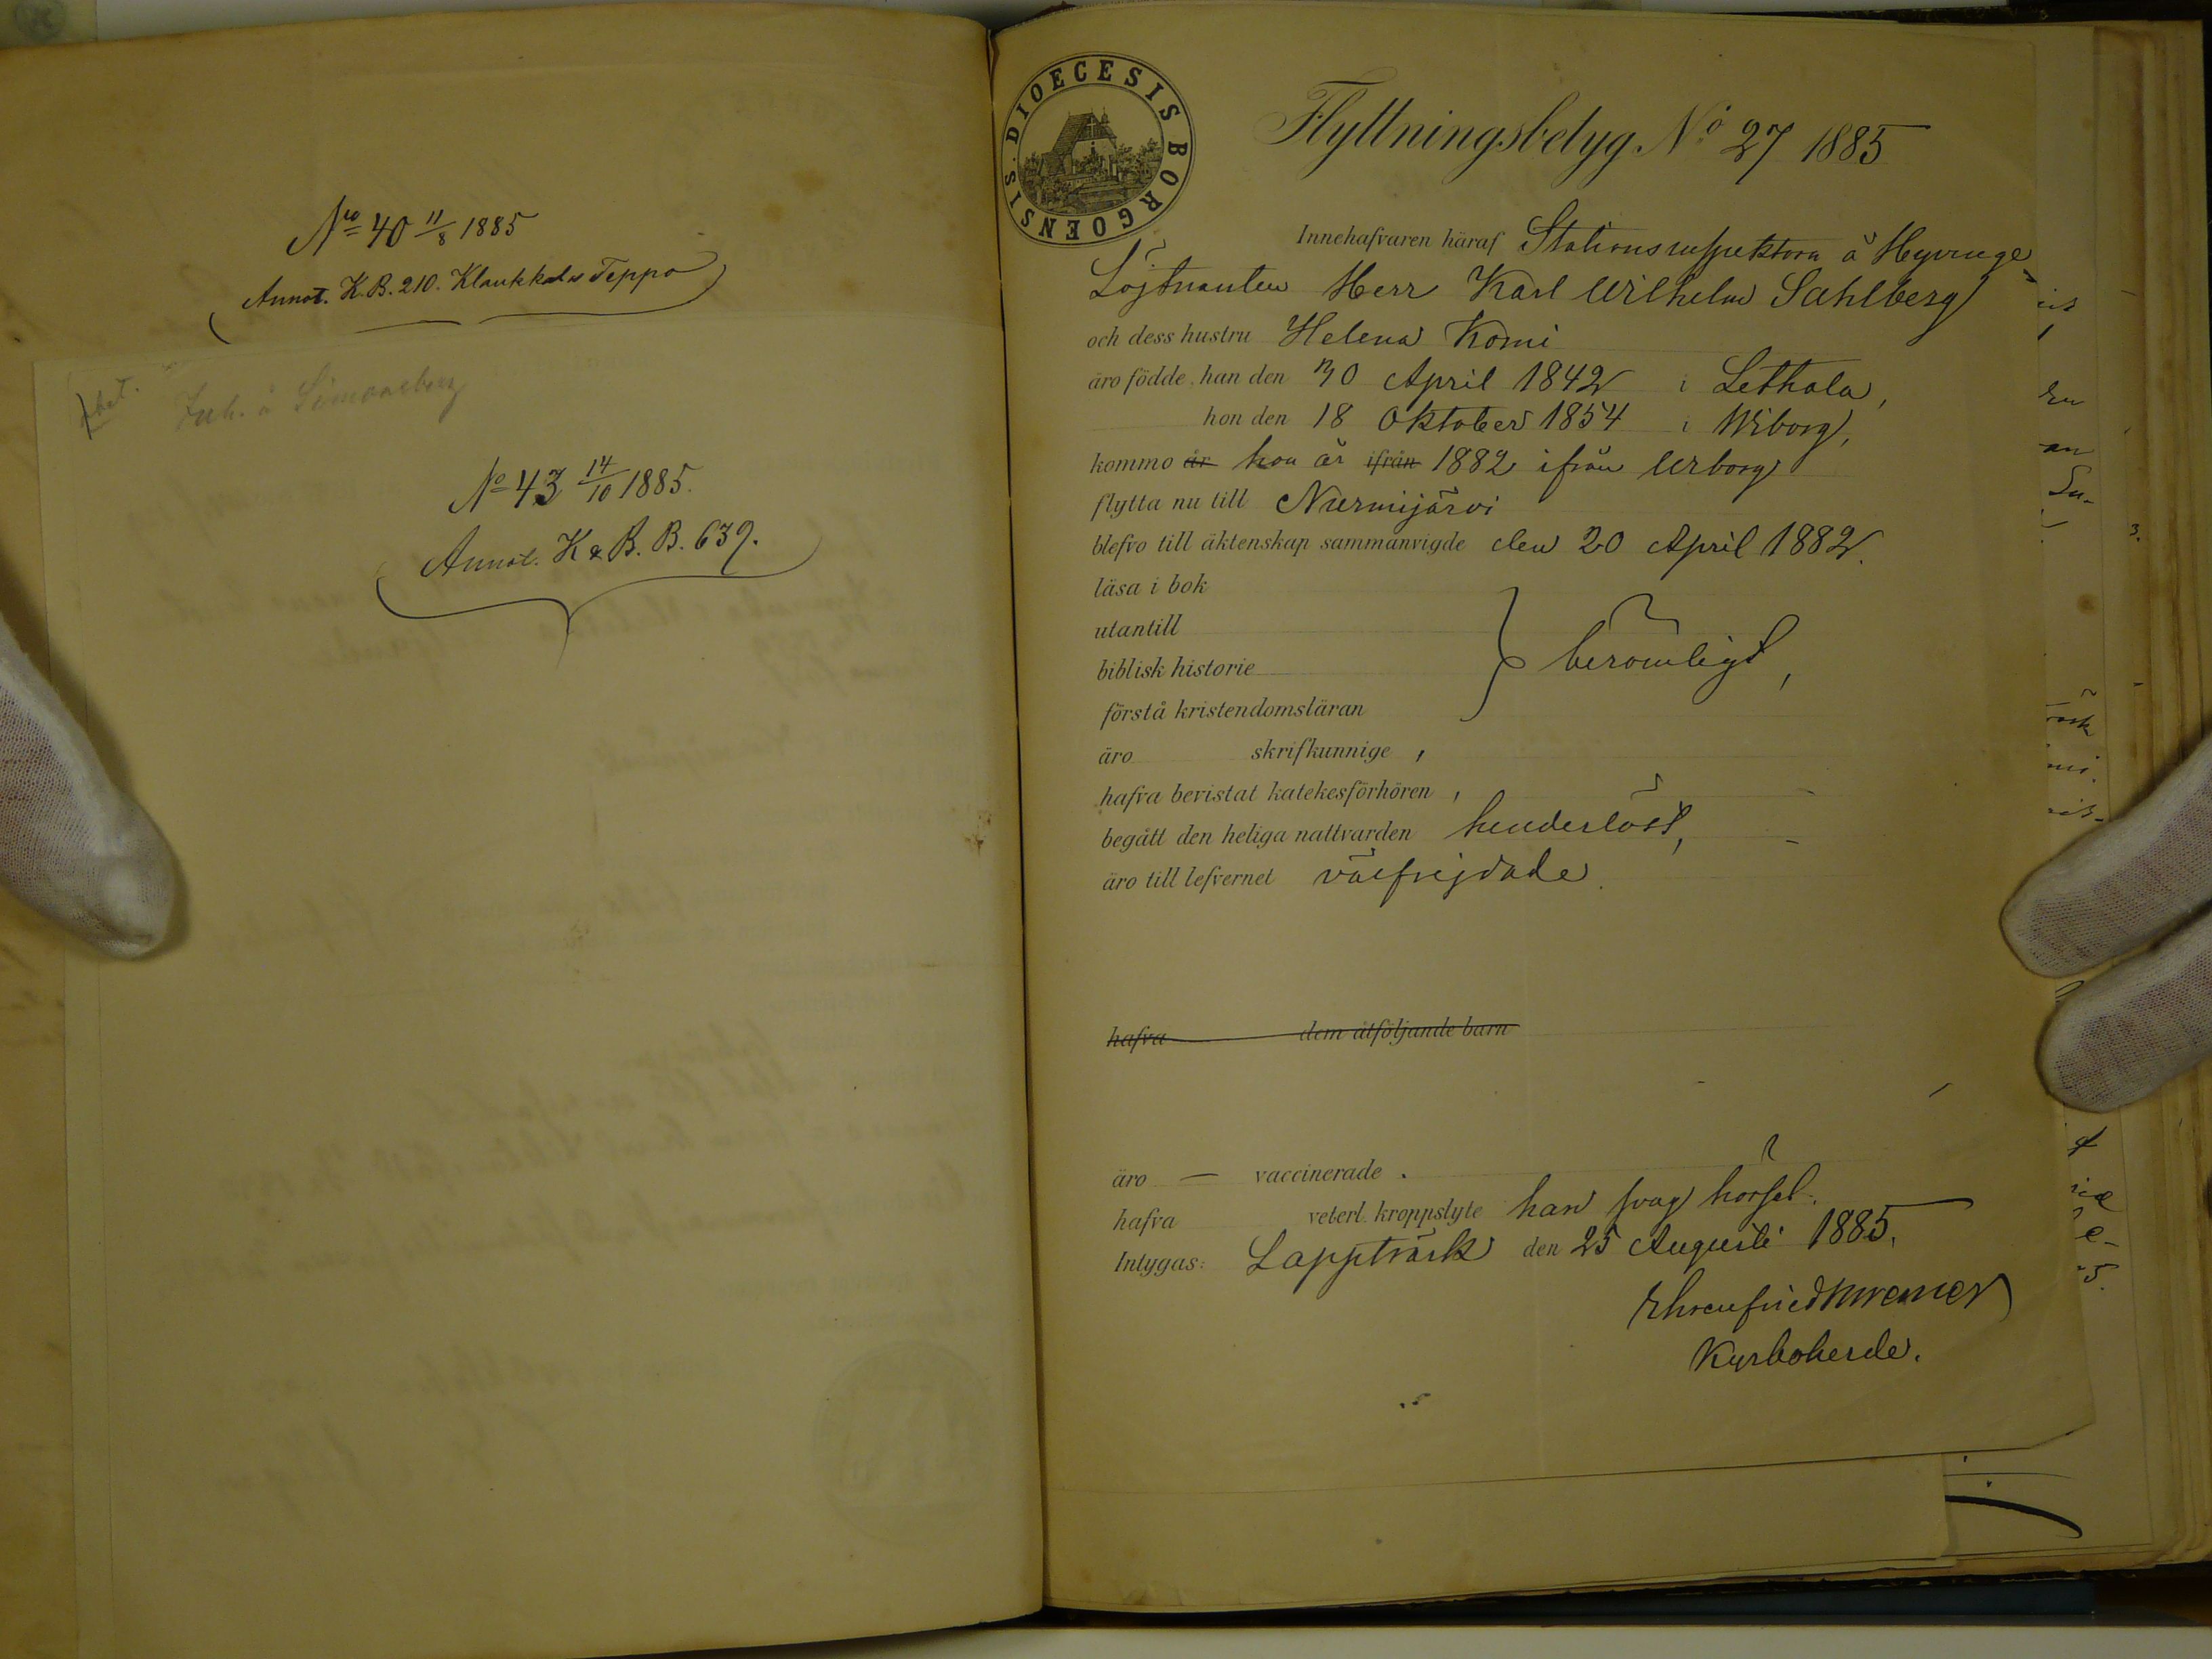 No 40 11/8 1885
Annot. K.B. 210. Klaukkala Teppo
Inh. å Simonsberg
No 43 14/10 1885.
Annot. K. B. B. 639.
DIOECESIS BORGOENSIS.
Flyttningsbetyg No 27 1885
Innehafvaren häraf Stationsinspektorn å Hyvinge
Löjtnanten Herr Karl Wilhelm Sahlberg
och dess hustru Helena Komi
äro födde, han den 30 April 1842 i Lethala,
hon den 18 Oktober 1854 i Wiborg,
kommo år hon år ifrån 1882 ifrån Wiborg
flytta nu till Nurmijärvi
blefvo till äktenskap sammanvigde den 20 April 1882.
läsa i bok
utantill
biblisk historie } berömligt,
förstå kristendomsläran
äro skrifkunnige,
hafva bevistat katekesförhören,
begått den heliga nattvarden hinderlöst,
äro till lefvernet välfrejdade.
hafva dem åtföljande barn
äro — vaccinerade.
hafva veterl. kroppslyte han svag hörsel.
Intygas: Lappträsk den 25 Augusti 1885.
Ehrenfried
Kyrkoherde.